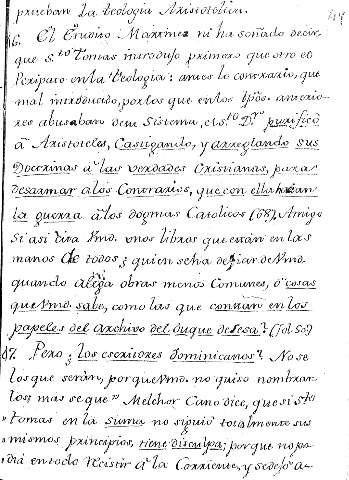 prueban la teologia Aristotelica.
16. El Erudito Maximez ni ha soñado decir
que S.to Tomas introduxo primero que otro eo
Peripato en la teologia: antes lo contrario, que
mal introducido, por los que en los tpõs. anterio-
res abusaban de su Sistema, el S.to D.r purificó
â Aristoteles, Castigando, y arreglando sus
Doctrinas â las verdades Cristianas, para
desarmar a los Contrarios, que con ella hazian
la guerra â los dogmas Catolicos (68). Amigo
si asi cita Vmd. unos libros que estan en las
manos de todos; quien se ha de fiar de Vmd.
quando alega obras menos Comunes, ô cosas
que Vmd. sabe, como las que constan en los
papeles del Archivo del Duque de Sesa? (fol 50)
17. Pero ¿los escritores dominicanos? No se
los que seran, porque Vmd. no quiso nombrar
los; mas se que "Melchor Cano dice, que si sto
"tomas en la suma no siguió totalmente sus
"mismos principios, tiene disculpa; porque no po-
dia en todo recistir â la Corriente, y se dexó a-